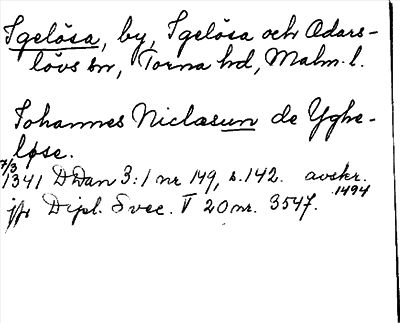 Igelösa, by, Igelösa och Odars-
lövs sn, Torna hd, Malm. l.
Johannes Niclæsun de Yghe-
løse.
7/3
1341 DDan 3:1 nr 149, s. 142. avskr.
1494
jfr Dipl. Svec. V 20 nr. 3547.